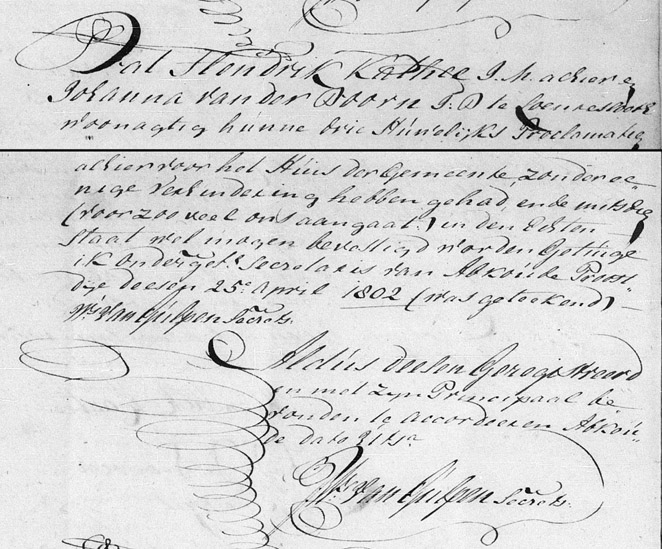 Dat Hendrik Kathee J. M. alhier e
Johanna van der Doorn J. D te Loenresloot
woonagtig hunne drie Huwelijks Proclamatie
alhier voor het Huis der Gemeente, zonder ee-
nige verhindering hebben gehad, ende mitsdie
(voor zoo veel ons aangaat) in den Echten
Staat wel mogen bevestigd worden Getuige
ik onderget. Secretaris van Abkoude
dye deesen 25e. April 1802 (was geteekend)
Wm. van Gulpen Secrets.
Aldus deesen Geregistreerd
en met zyn Principaal be-
vonden te accordeeren Abkou-
de dato
Wm. van Gulpen Secrets.